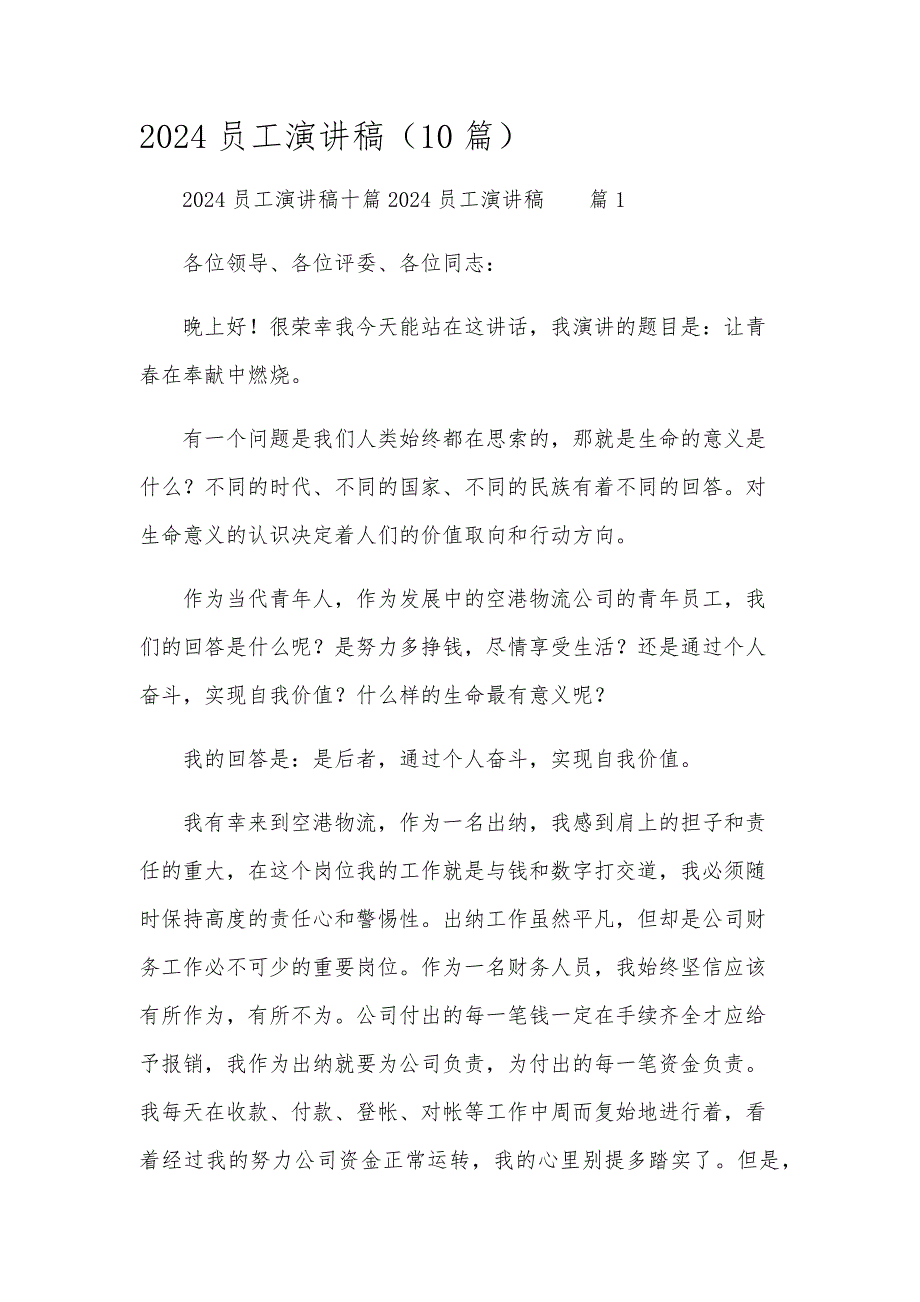 2024 员工演讲稿（10 篇）
2024 员工演讲稿十篇 2024 员工演讲稿　　篇 1
各位领导、各位评委、各位同志：
晚上好！很荣幸我今天能站在这讲话，我演讲的题目是：让青
春在奉献中燃烧。
有一个问题是我们人类始终都在思索的，那就是生命的意义是
什么？不同的时代、不同的国家、不同的民族有着不同的回答。对
生命意义的认识决定着人们的价值取向和行动方向。
作为当代青年人，作为发展中的空港物流公司的青年员工，我
们的回答是什么呢？是努力多挣钱，尽情享受生活？还是通过个人
奋斗，实现自我价值？什么样的生命最有意义呢？
我的回答是：是后者，通过个人奋斗，实现自我价值。
我有幸来到空港物流，作为一名出纳，我感到肩上的担子和责
任的重大，在这个岗位我的工作就是与钱和数字打交道，我必须随
时保持高度的责任心和警惕性。出纳工作虽然平凡，但却是公司财
务工作必不可少的重要岗位。作为一名财务人员，我始终坚信应该
有所作为，有所不为。公司付出的每一笔钱一定在手续齐全才应给
予报销，我作为出纳就要为公司负责，为付出的每一笔资金负责。
我每天在收款、付款、登帐、对帐等工作中周而复始地进行着，看
着经过我的努力公司资金正常运转，我的心里别提多踏实了。但是，